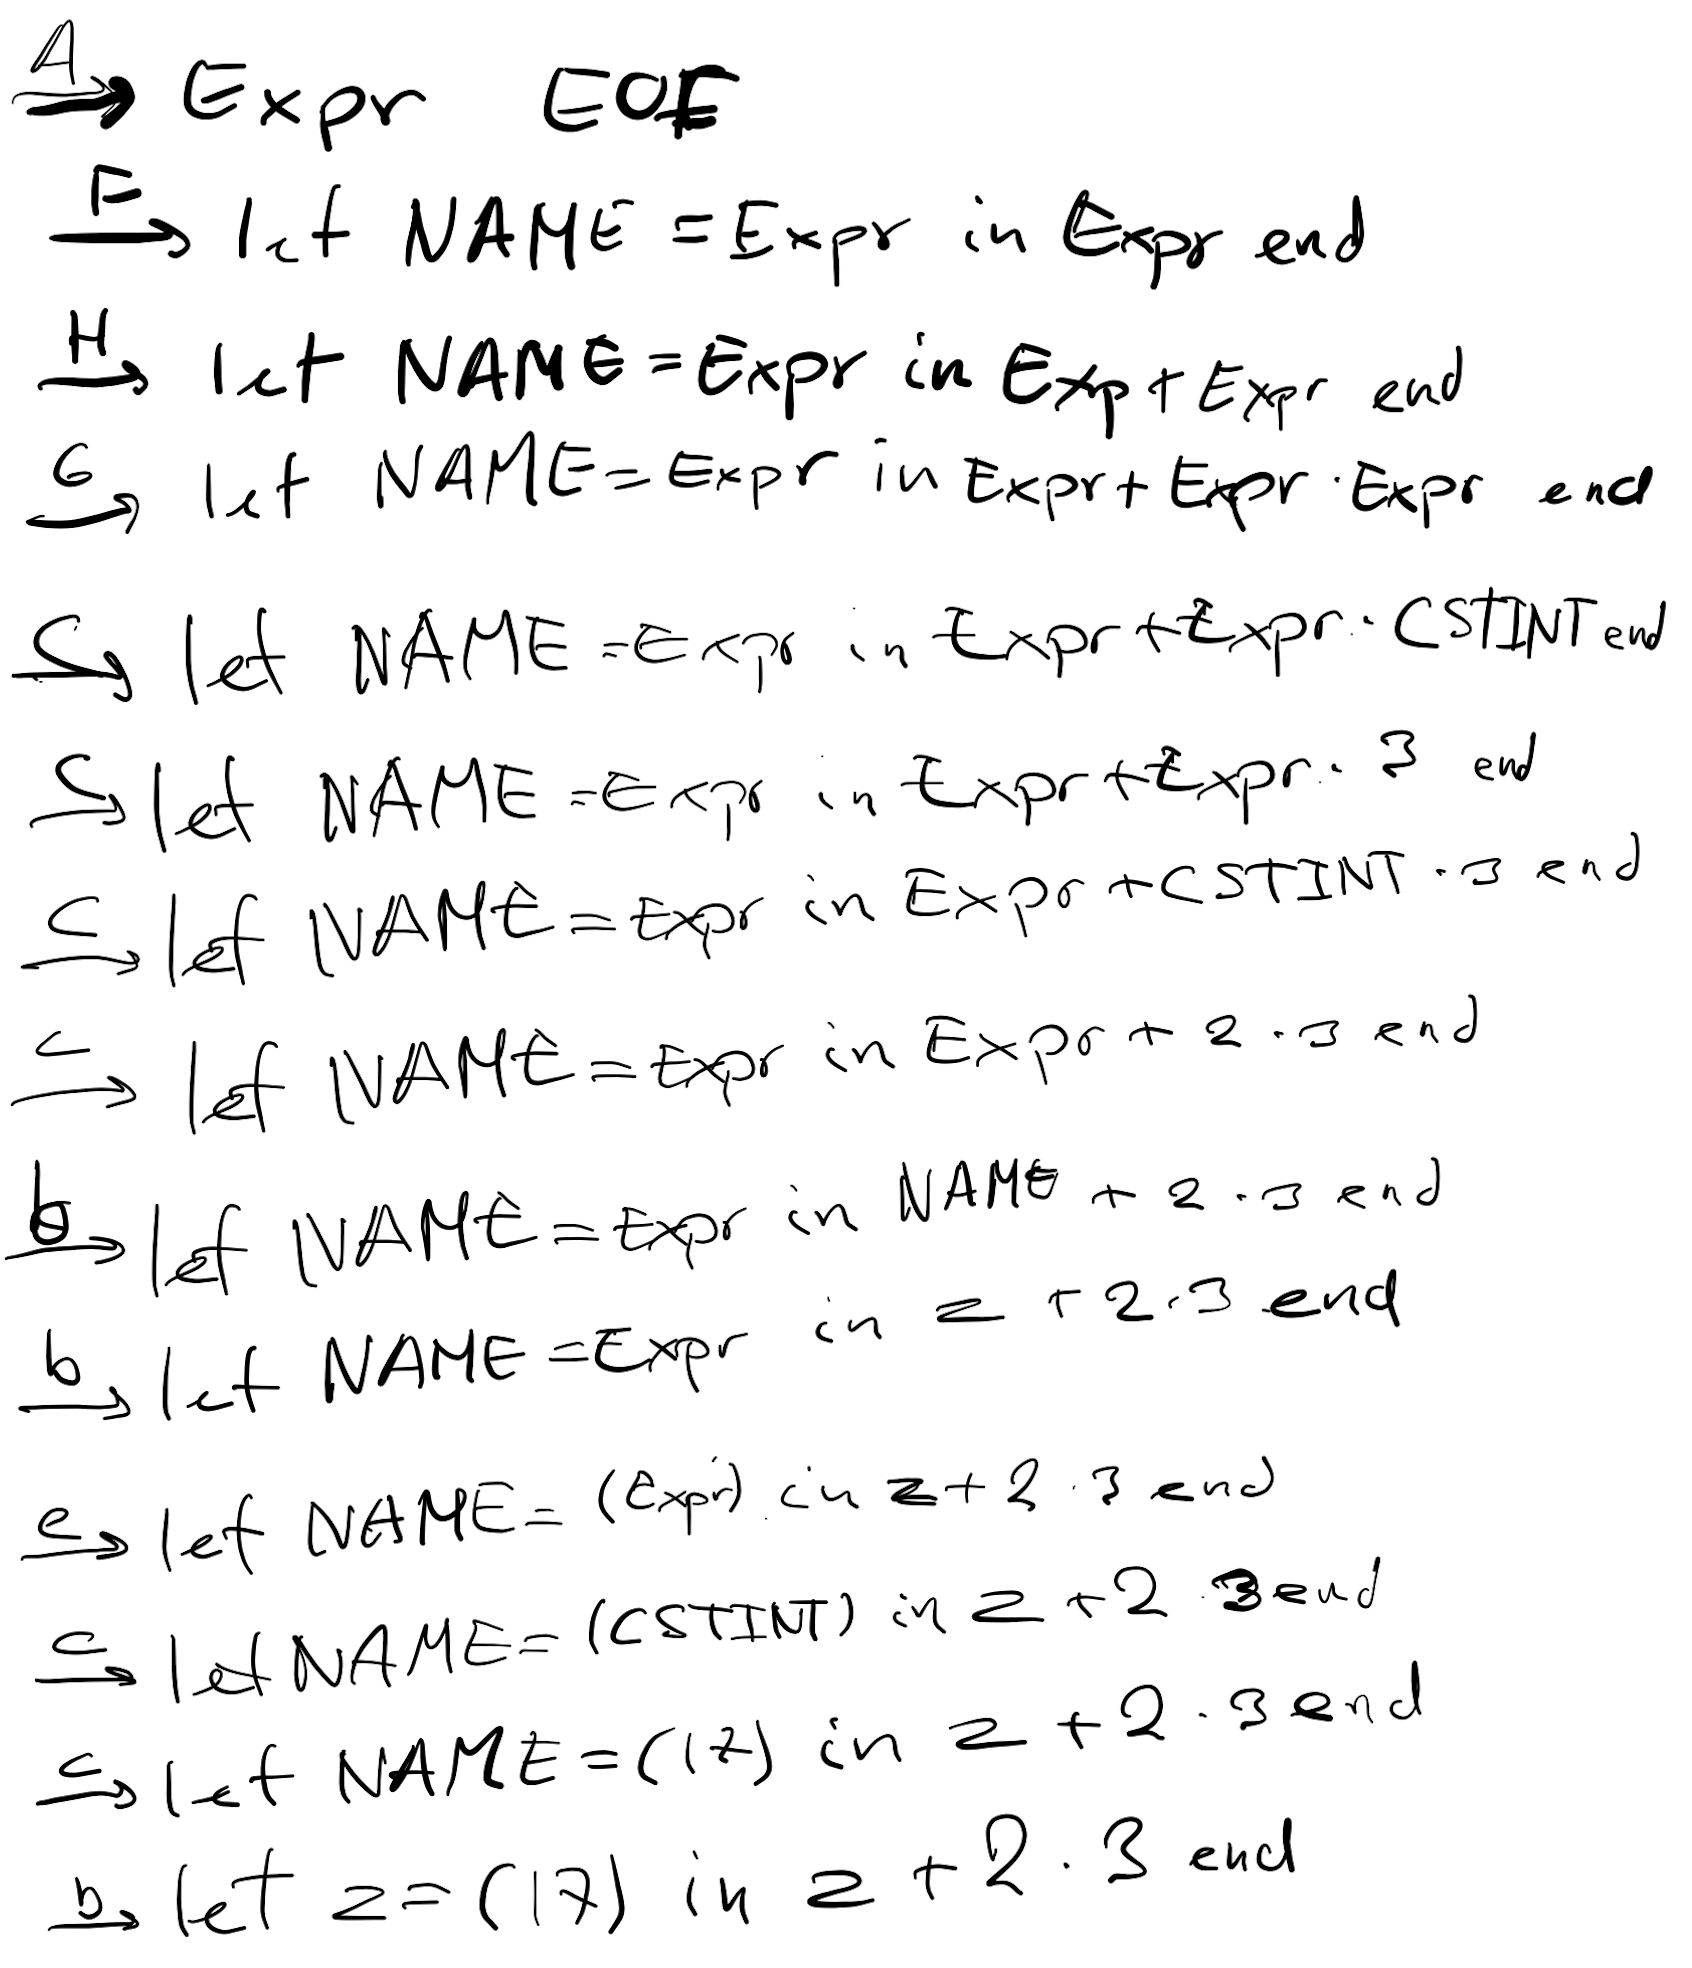 A→ Expr EOF
F→ let NAME = Expr in Expr end
H→ let NAME = Expr in Exp + Expr end
G→ let NAME = Expr in Expr + Expr · Expr end
C→ let NAME = Expr in Expr + Expr · CSTINT end
C→ let NAME = Expr in Expr + Expr · 3 end
C→ let NAME = Expr in Expr + CSTINT · 3 end
C→ let NAME = Expr in Expr + 2 · 3 end
b→ let NAME = Expr in NAME + 2 · 3 end
b→ let NAME = Expr in z + 2 · 3 end
e→ let NAME = (Expr) in z + 2 · 3 end
C→ let NAME = (CSTINT) in z + 2 · 3 end
C→ let NAME = (17) in z + 2 · 3 end
b→ let z = (17) in z + 2 · 3 end